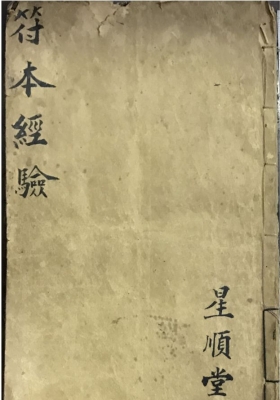 符本經驗
星順堂